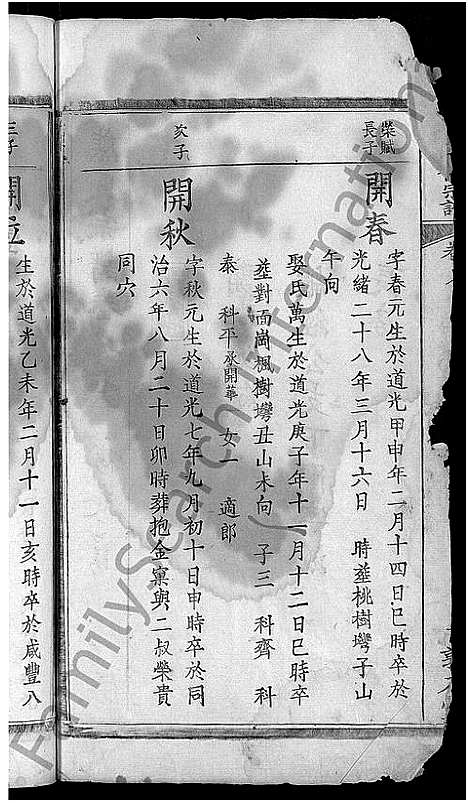 宗譜
榮賦
長子
開春
字春元生於道光甲申年二月十四日巳時卒於
光緒二十八年三月十六日 時塟桃樹塆子山
午向
娶氏萬生於道光庚子年十一月十二日巳時卒
塟對面崗楓樹塆丑山未向 子三 科齊 科
泰 科平承開華 女一 適郎
次子
開秋
字秋元生於道光七年九月初十日申時卒於同
治六年八月二十日卯時葬抱金窠與二叔榮貴
同穴
三子
開位
生於道光乙未年二月十一日亥時卒於咸豐八
FamilySearch International